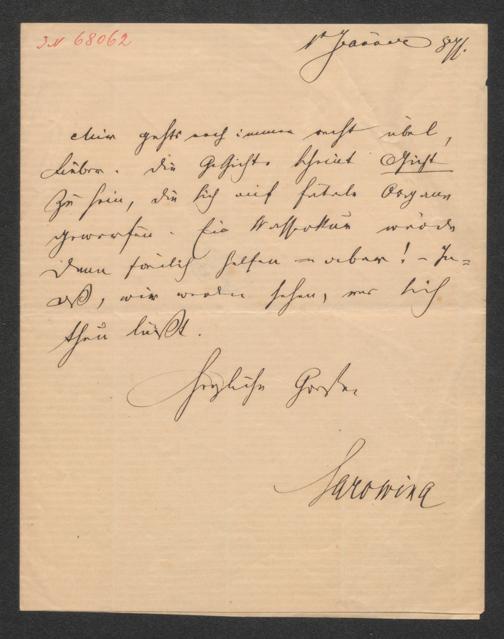 IN 68062
1t Januar 877.
Mir gehts noch immer recht übel,
Lieber. Die Geschichte scheint Gicht
zu sein, die sich auf fatale Organe
geworfen. Ein Wasserkur würde
dann freilich helfen – aber! – In=
deß, wir werden sehen, was sich
thun läßt.
Herzliche Grüße